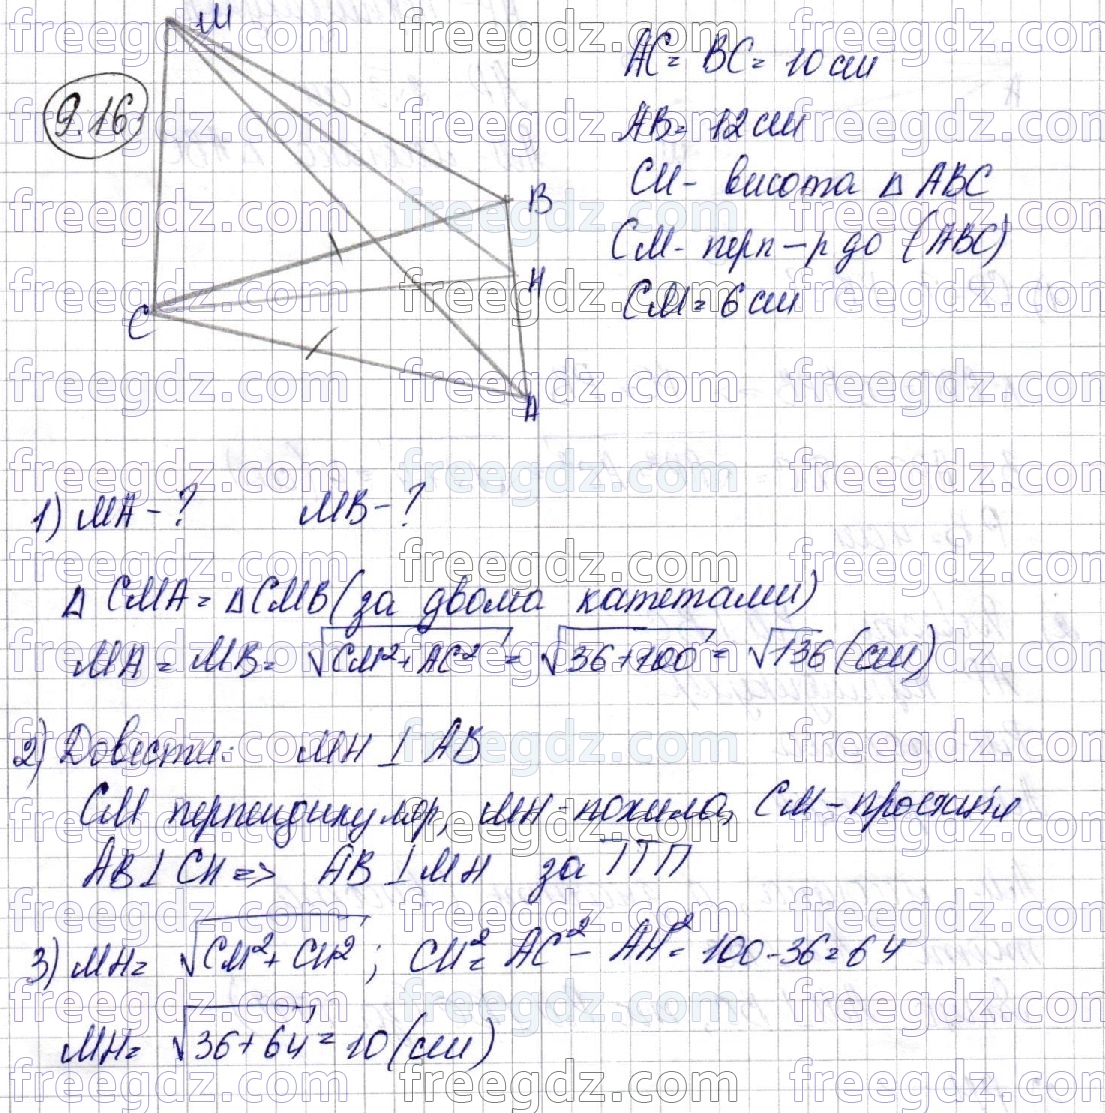 M
9.16
B
H
C
A
AC = BC = 10 см
AB = 12 см
CH - висота △ ABC
CM - перп-р до (ABC)
CM = 6 см
1) MA - ? MB - ?
△ CMA = △ CMB (за двома катетами)
MA = MB = √CM²+AC² = √36+100 = √136 (см)
2) Довести: MH ⊥ AB
CM перпендикуляр, MH - похила, CM - проекція
AB ⊥ CH => AB ⊥ MH за ТТП
3) MH = √CM²+CH² ; CH² = AC² - AH² = 100-36=64
MH = √36+64 = 10 (см)
freegdz.com